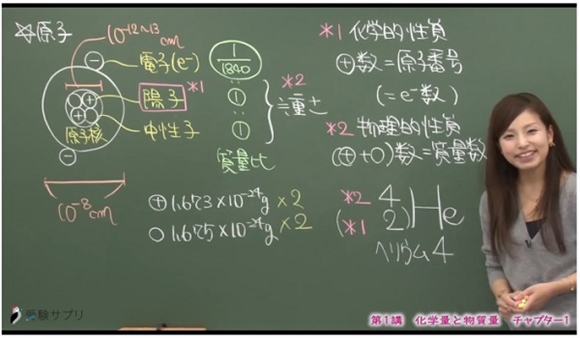 ☆原子
10⁻¹²~¹³ cm
電子(e⁻)
陽子 *1
中性子
原子核
10⁻⁸cm
1/1840
:
①
:
①
質量比
*2
≒重さ
⊕1.673×10⁻²⁴g ×2
○1.675×10⁻²⁴g ×2
*1 化学的性質
⊕数=原子番号
(=e⁻数)
*2 物理的性質
(⊕+○)数=質量数
*2 4
(*1 2) He
ヘリウム4
受験サプリ
第1講 化学量と物質量 チャプター1